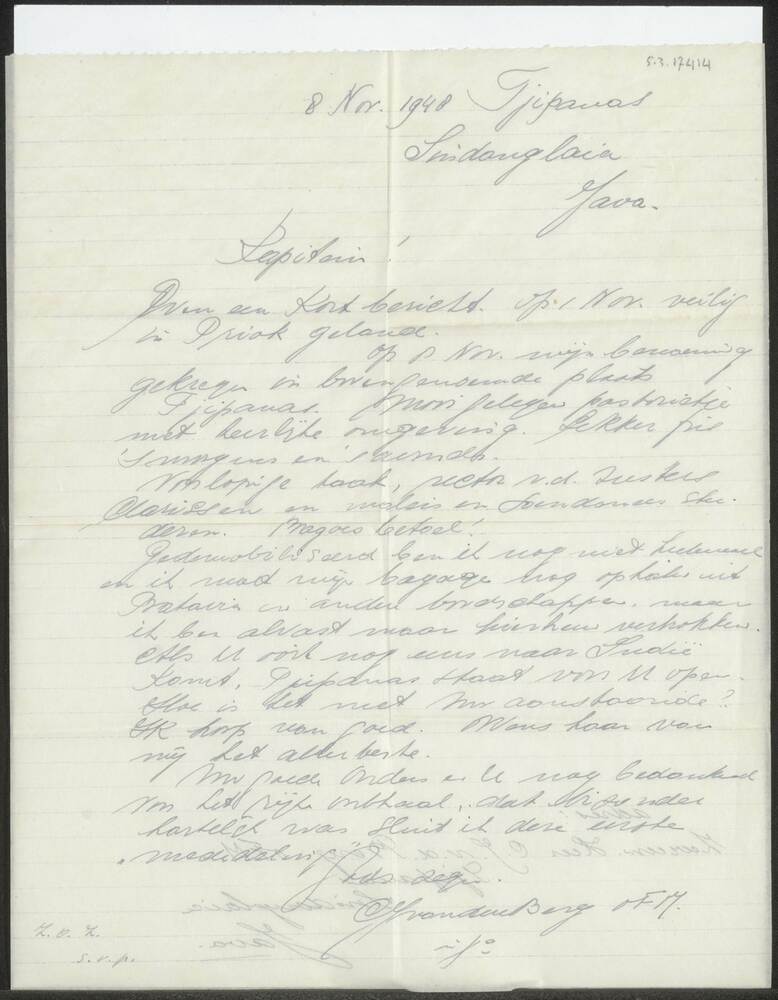 5.3.17414
8 Nov. 1948 Tjipanas
Sindanglaia
Java.
Kapitein!
Even een kort bericht. Op 1 Nov. veilig
in Priok geland.
Op 8 Nov. mijn benoeming
gekregen in bovengenoemde plaats
Tjipanas. Mooi gelegen pastorietje
met heerlijke omgeving. Lekker fris
's morgens en 's avonds.
Voorlopige taak, rector v.d. Zusters
Clarissen en maleis en Soendanees stu-
deren. Bagoes betoel!
Gedemobiliseerd ben ik nog niet helemaal
en ik moet mijn bagage nog ophalen uit
Batavia en andere boodschappen, maar
ik ben alvast maar hierheen vertrokken.
Als U ooit nog eens naar Indië
komt, Tjipanas staat voor U open.
Hoe is het met Uw aanstaande?
Ik hoop van goed. Wens haar van
mij het allerbeste.
Uw goede Ouders en U nog bedankend
voor het fijne onthaal, dat bijzonder
hartelijk was sluit ik deze eerste
"mededeling"
Gods zegen.
vandenBerg OFM.
Z.O.Z.
s.v.p.